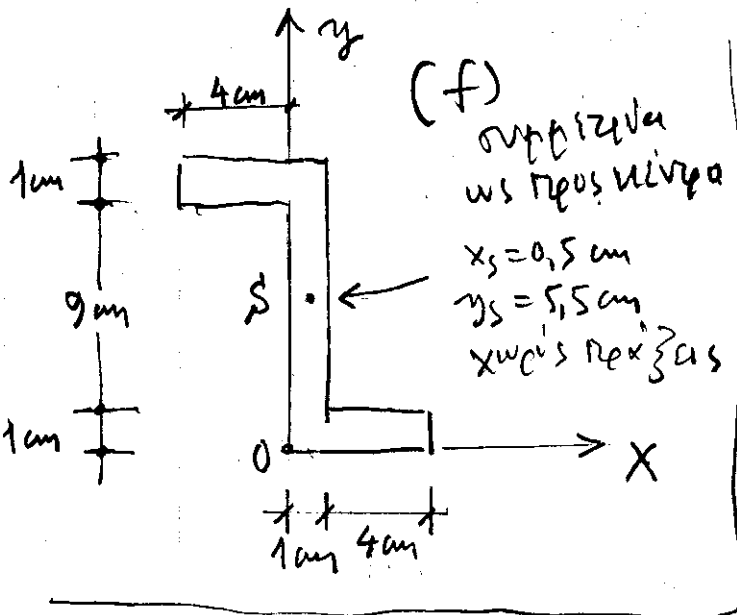 y
4 cm
(f)
συμμετρία
ως προς κέντρο
1 cm
x_s = 0,5 cm
y_s = 5,5 cm
χωρίς πράξεις
S
9 cm
1 cm
0
X
1 cm 4 cm